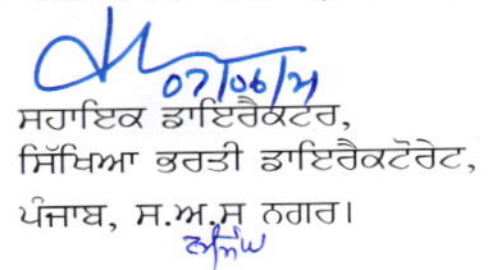 07/06/21
ਸਹਾਇਕ ਡਾਇਰੈਕਟਰ,
ਸਿੱਖਿਆ ਭਰਤੀ ਡਾਇਰੈਕਟੋਰੇਟ,
ਪੰਜਾਬ, ਸ.ਅ.ਸ ਨਗਰ।